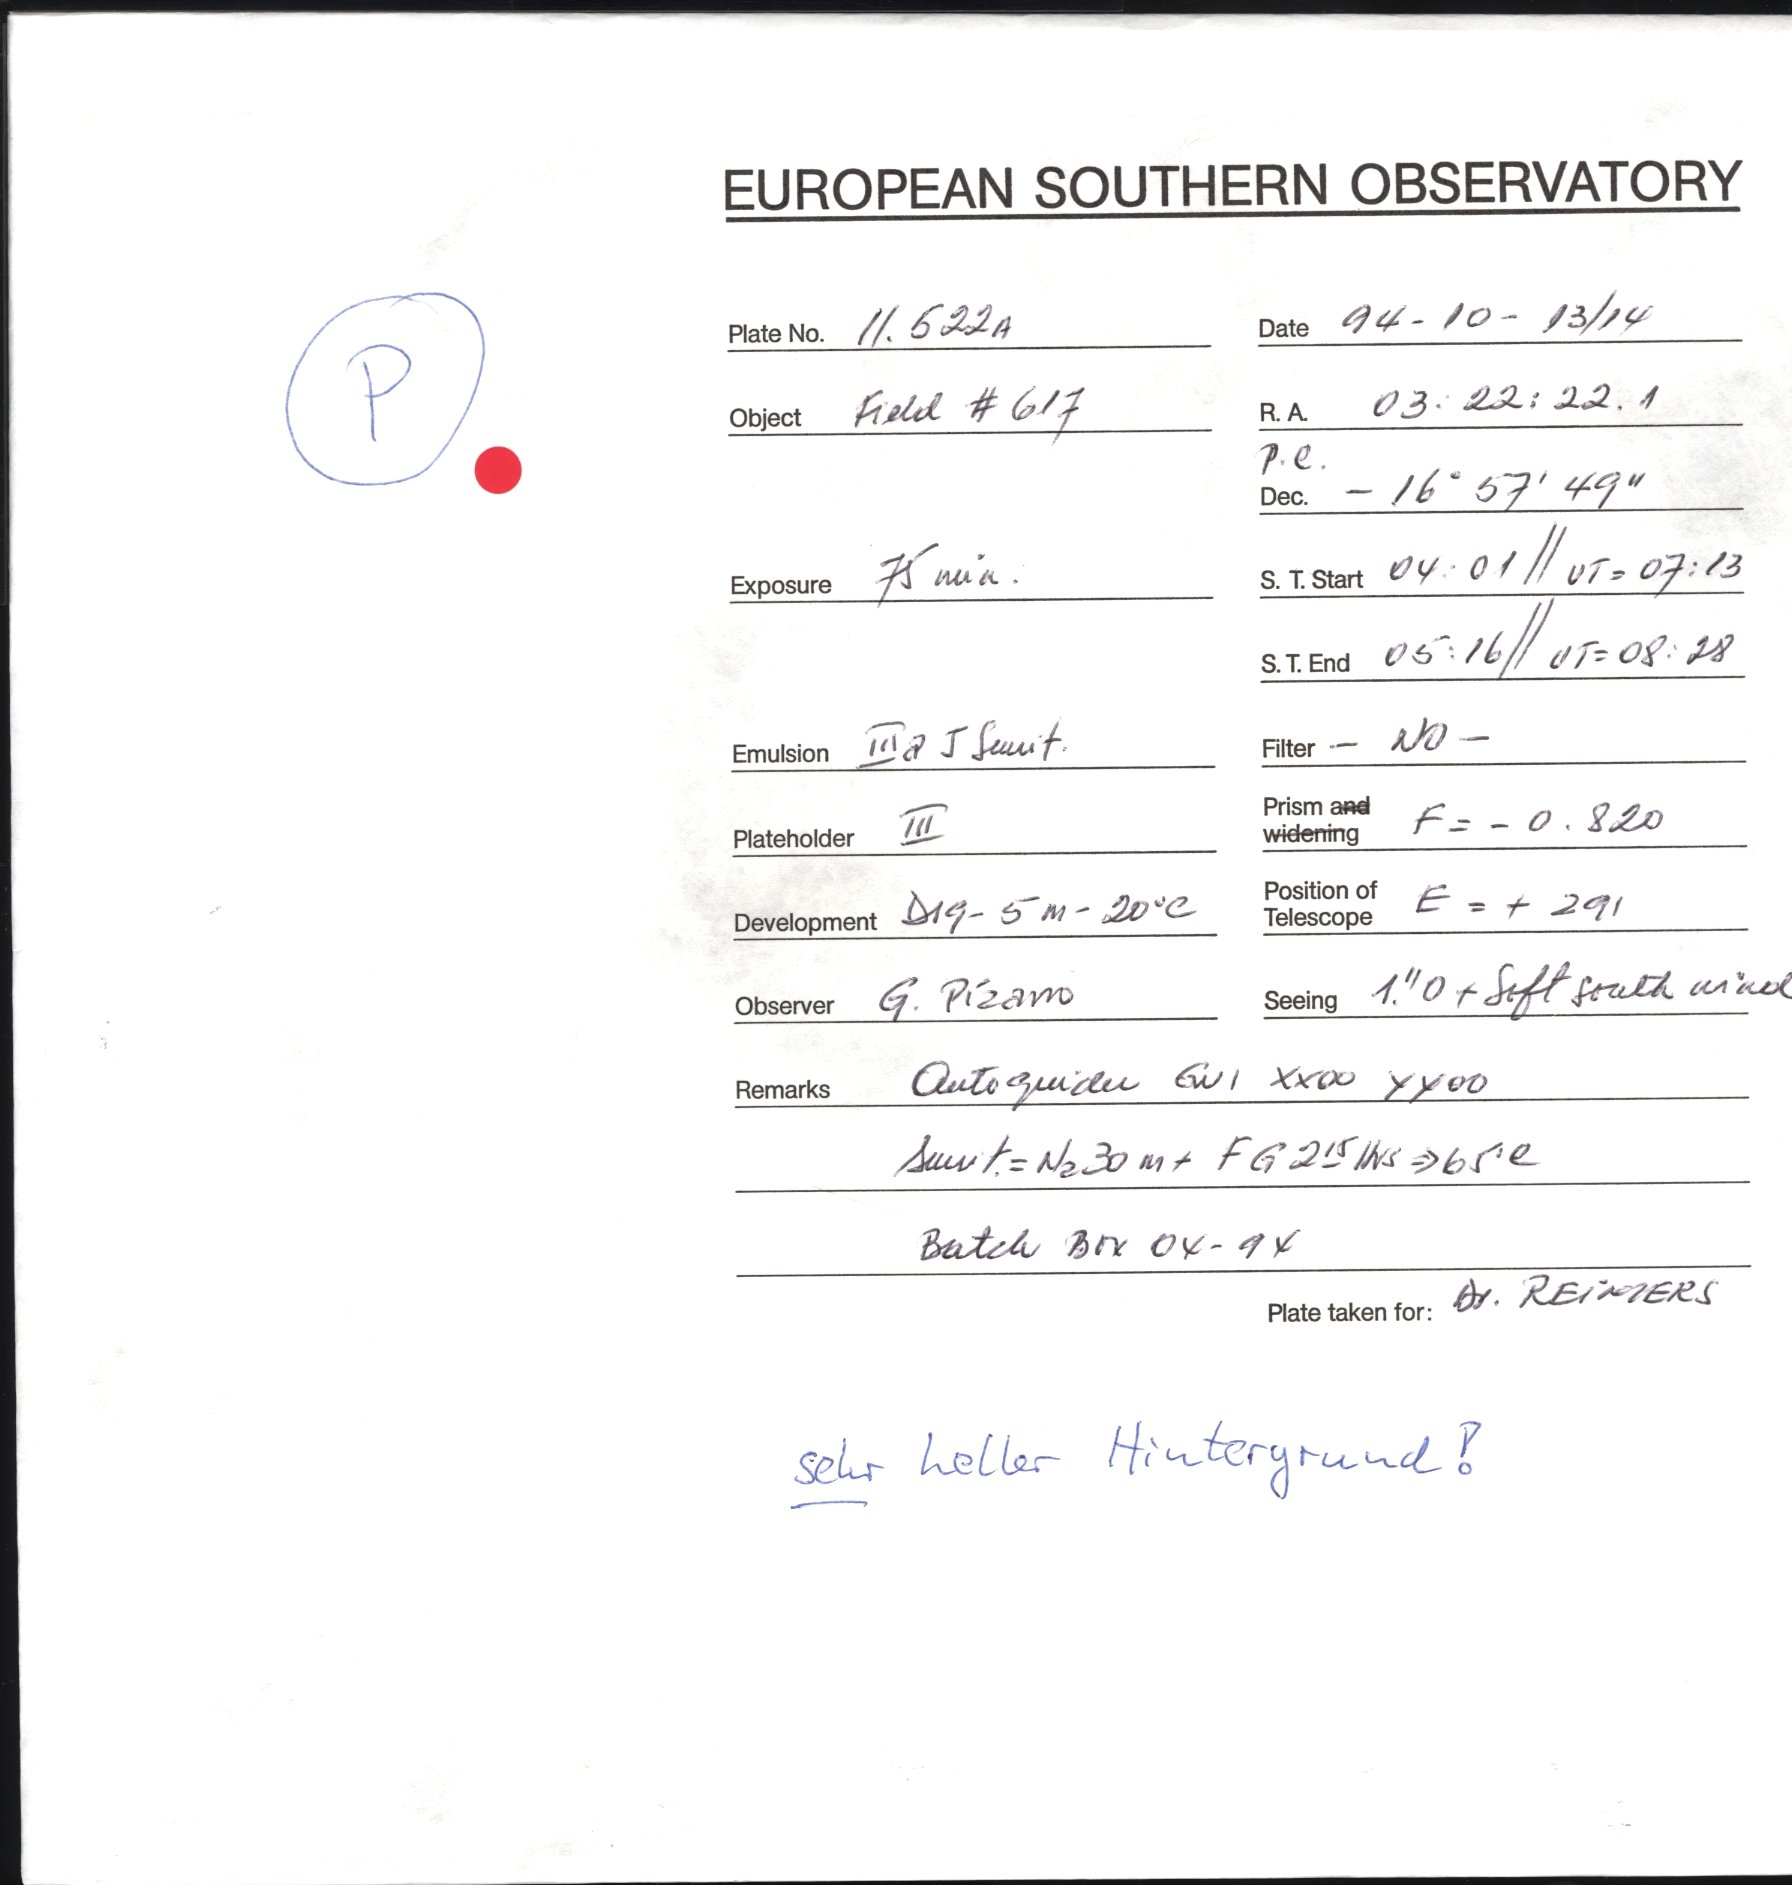 EUROPEAN SOUTHERN OBSERVATORY
P
Plate No. 11.522A Date 94-10-13/14
Object Field # 617 R. A. 03:22:22.1
P.C.
Dec. - 16° 57' 49"
Exposure 75 min. S. T. Start 04:01 // UT= 07:13
S. T. End 05:16 // UT= 08:28
Emulsion III a J Sensit. Filter - NO -
Plateholder III Prism and widening F = - 0.820
Development D19 - 5 m - 20°C Position of Telescope E = + 291
Observer G. Pizarro Seeing 1."0 + Soft south wind
Remarks Autoguider GW1 XX00 YY00
Sensit. = N2 30 m + FG 2 15 hrs ⇒ 65°C
Batch Box 04-94
Plate taken for: Dr. REIMERS
sehr heller Hintergrund!